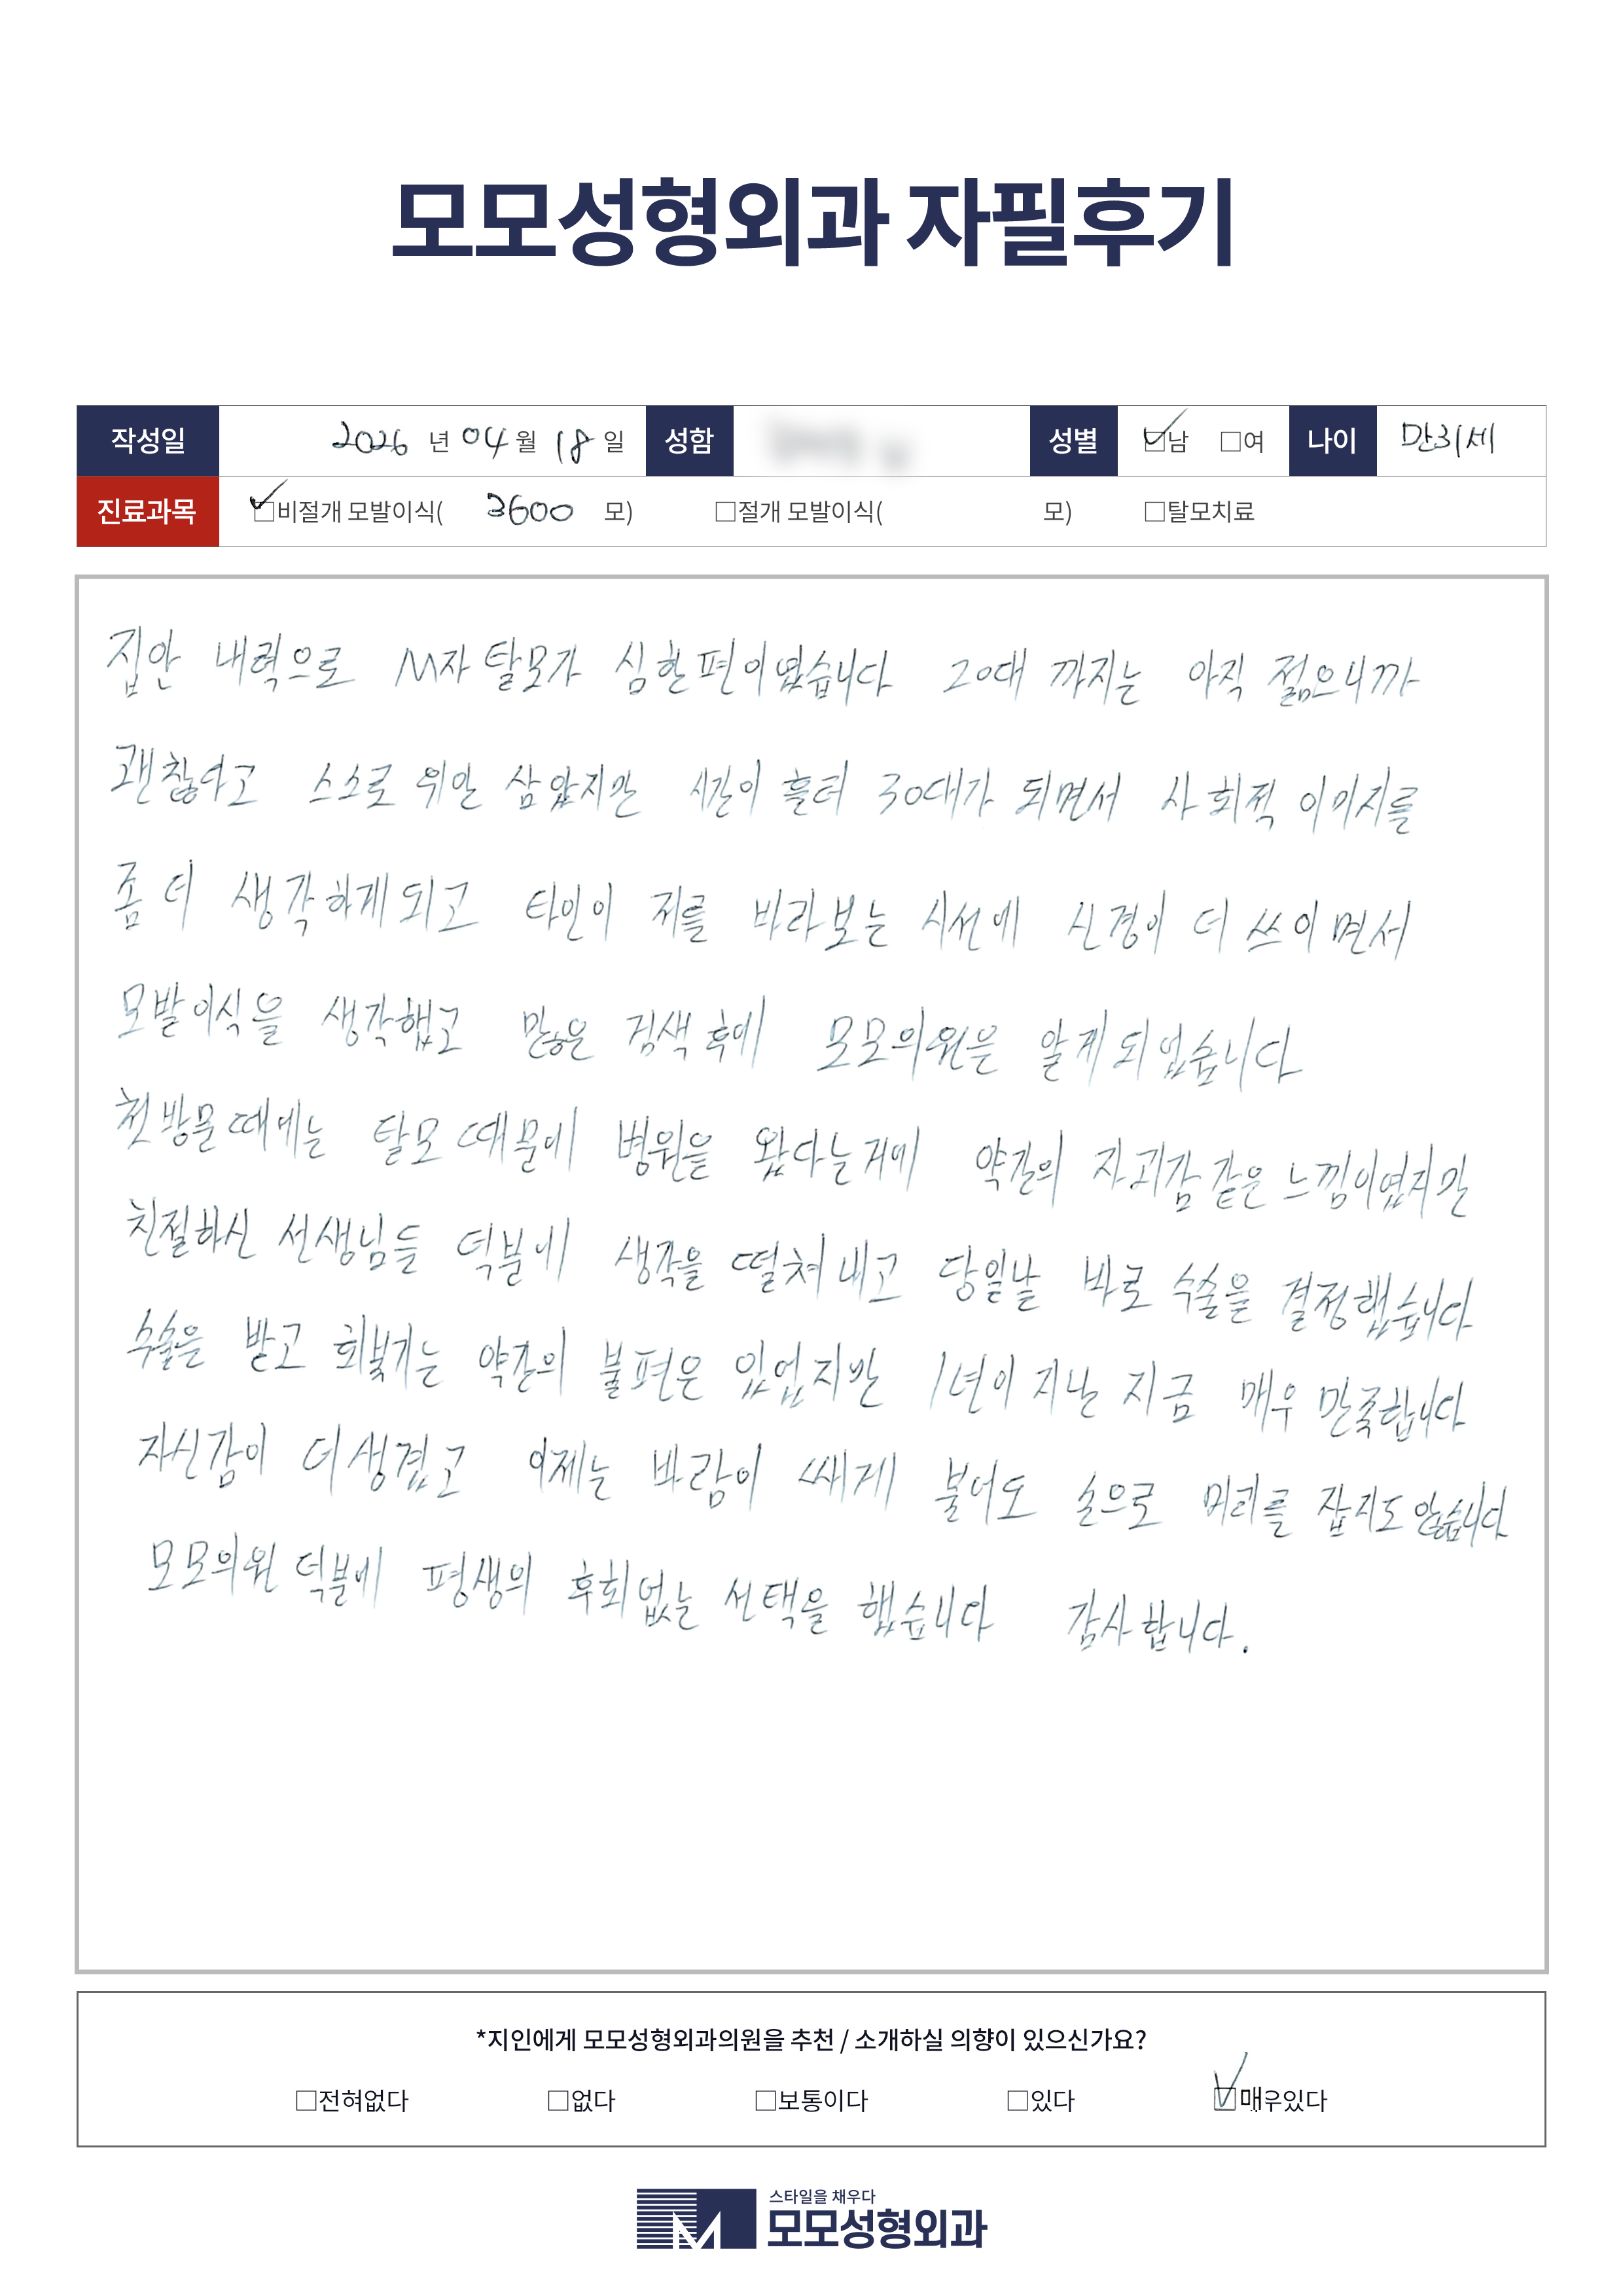 모모성형외과 자필후기
작성일 2026 년 04 월 18 일 성함 성별 ☑남 □여 나이 만31세
진료과목 ☑비절개 모발이식( 3600 모) □절개 모발이식( 모) □탈모치료
집안 내력으로 M자 탈모가 심한편이였습니다 20대 까지는 아직 젊으니까
괜찮다고 스스로 위안 삼았지만 시간이 흘러 30대가 되면서 사회적 이미지를
좀 더 생각하게되고 타인이 저를 바라보는 시선에 신경이 더 쓰이면서
모발이식을 생각했고 많은 검색 후에 모모의원은 알게되었습니다
첫방문때에는 탈모 때문에 병원을 왔다는거에 약간의 자괴감 같은 느낌이였지만
친절하신 선생님들 덕분에 생각을 떨쳐내고 당일날 바로 수술을 결정했습니다
수술은 받고 회복기는 약간의 불편은 있었지만 1년이 지난 지금 매우 만족합니다
자신감이 더생겼고 이제는 바람이 쌔게 불어도 손으로 머리를 잡지도 않습니다
모모의원 덕분에 평생의 후회없는 선택을 했습니다 감사합니다.
*지인에게 모모성형외과의원을 추천 / 소개하실 의향이 있으신가요?
□전혀없다 □없다 □보통이다 □있다 ☑매우있다
스타일을 채우다
모모성형외과